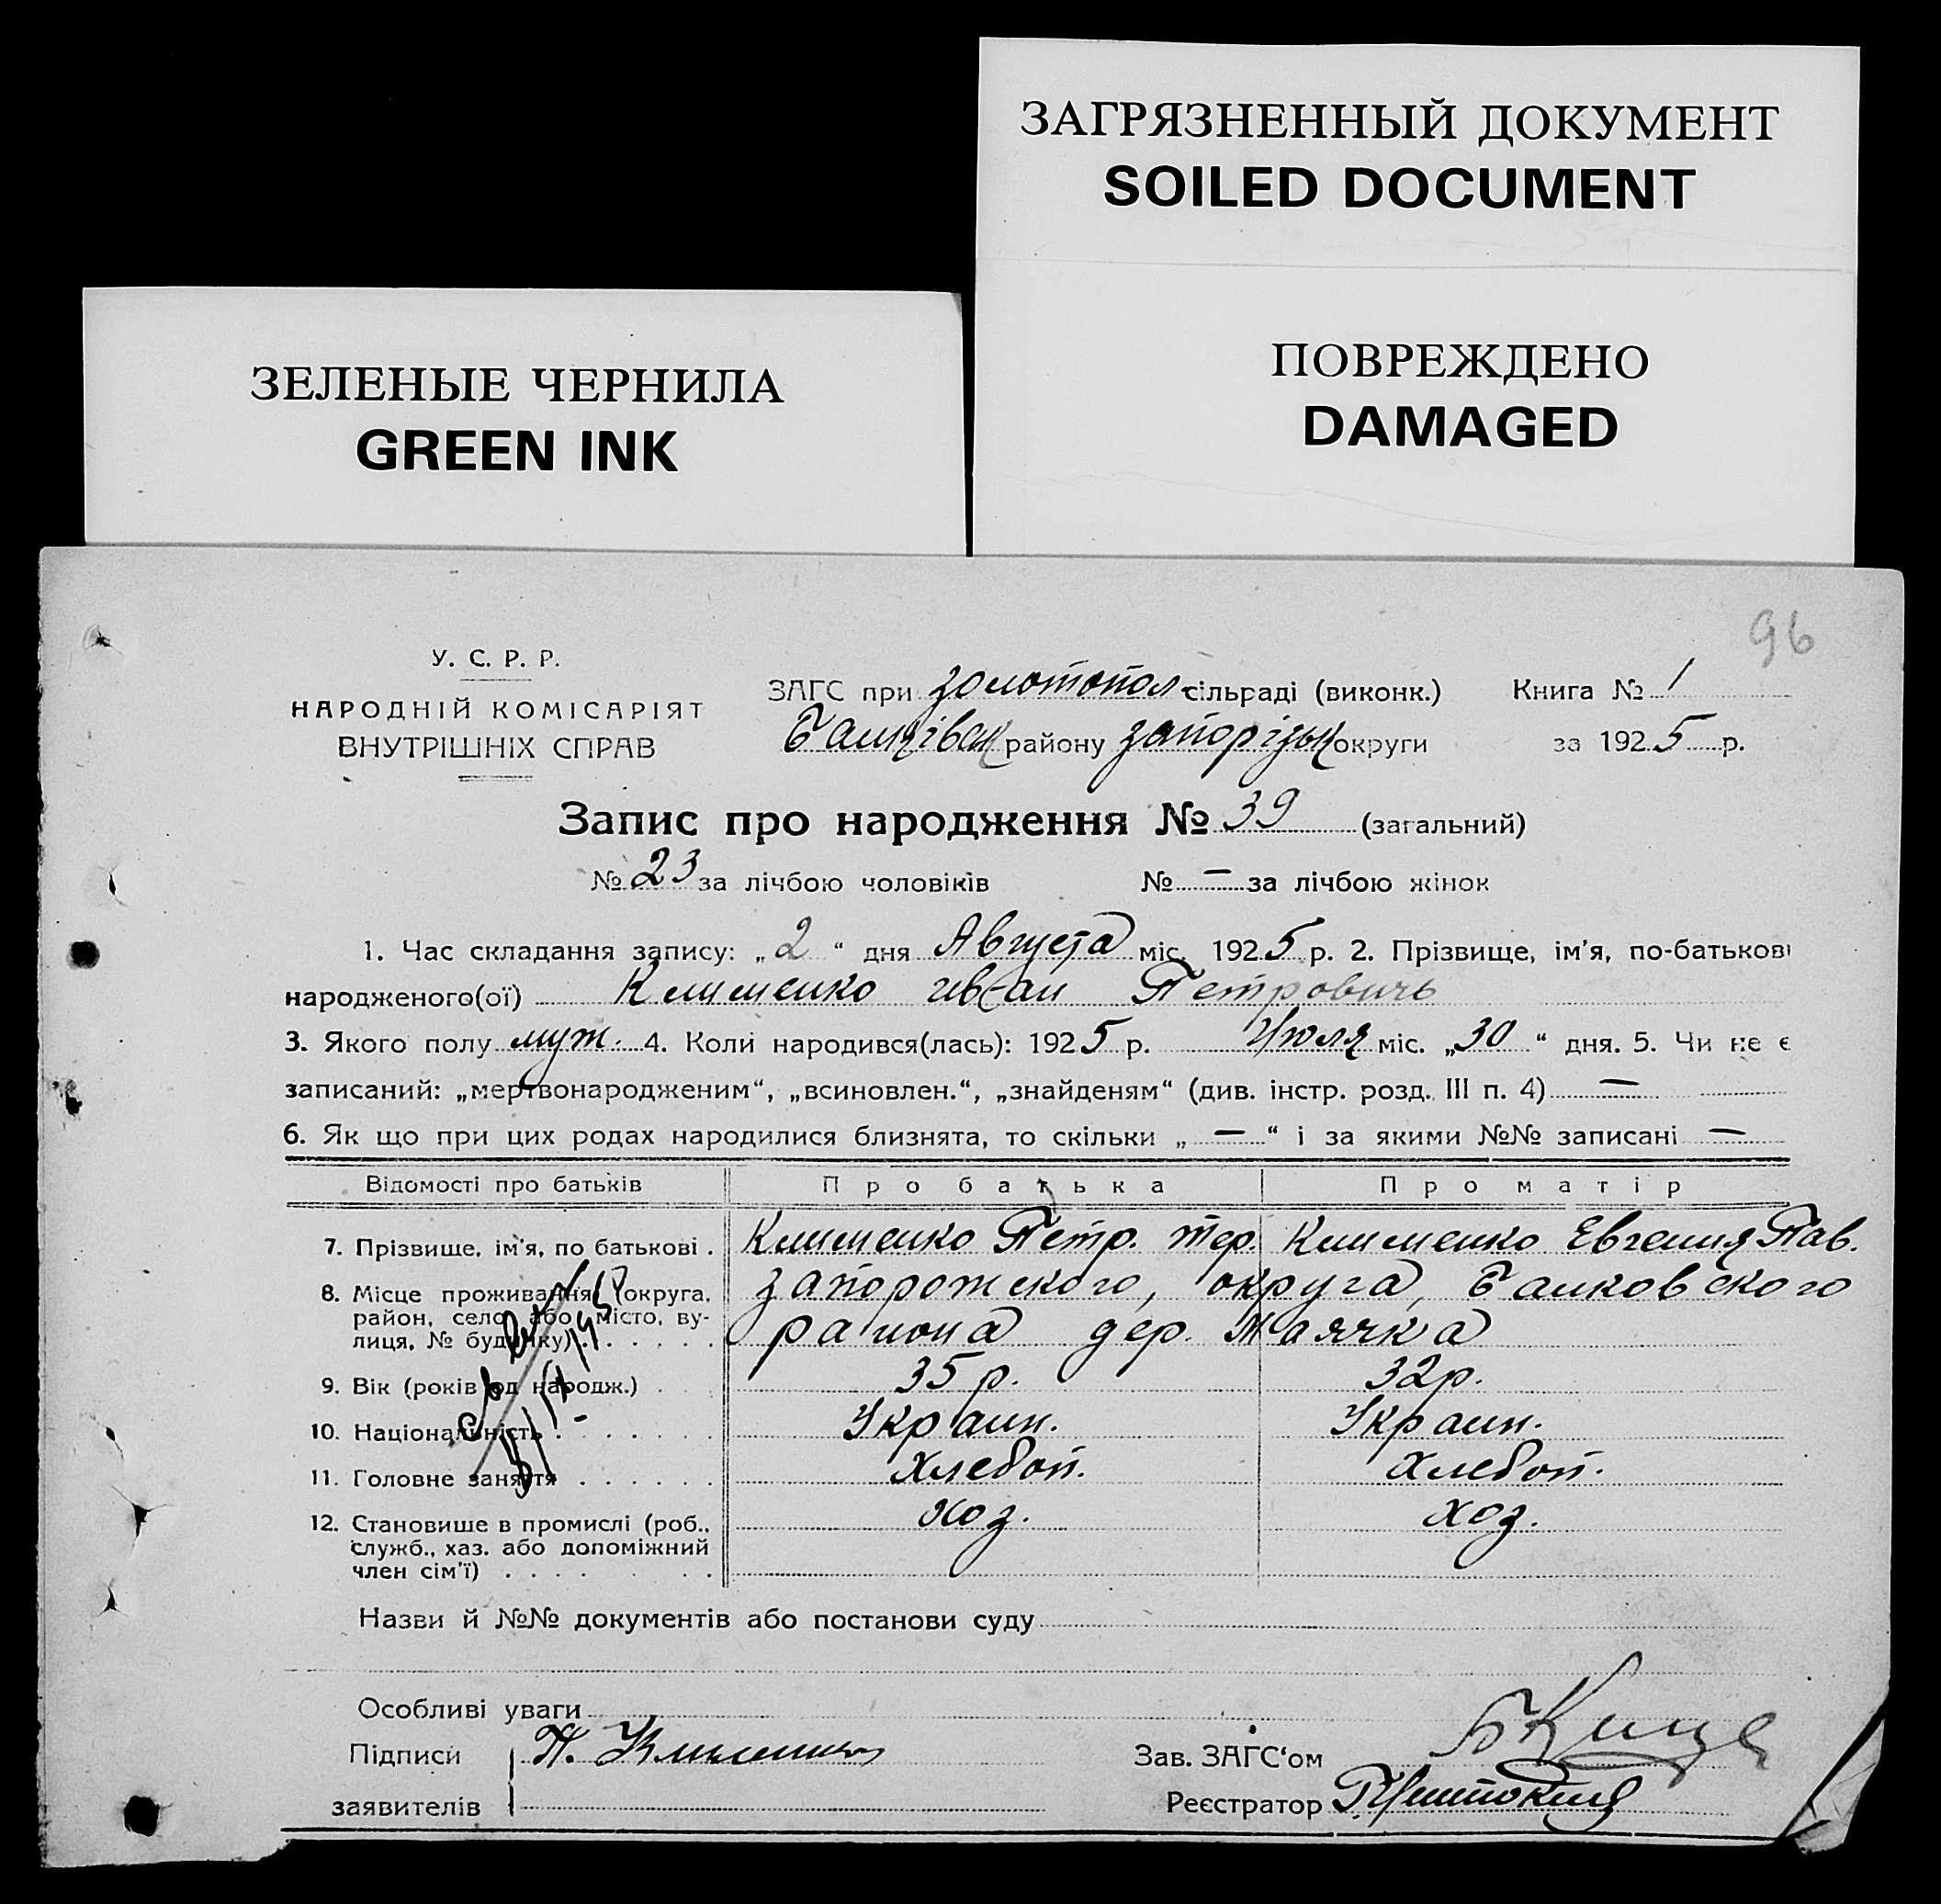 ЗАГРЯЗНЕННЫЙ ДОКУМЕНТ
SOILED DOCUMENT
ПОВРЕЖДЕНО
DAMAGED
ЗЕЛЕНЫЕ ЧЕРНИЛА
GREEN INK
96
У. С. Р. Р.
НАРОДНІЙ КОМІСАРІЯТ
ВНУТРІШНІХ СПРАВ
ЗАГС при Золотопол. сільраді (виконк.) Книга № 1
району Запорізьк округи за 1925 р.
Запис про народження № 39 (загальний)
№ 23 за лічбою чоловіків № — за лічбою жінок
1. Час складання запису: „2“ дня Августа міс. 1925 р. 2. Прізвище, ім'я, по-батькові
народженого(ої) Клименко Иван Петровичь
3. Якого полу муж. 4. Коли народився(лась): 1925 р. Июля міс. „30“ дня. 5. Чи не є
записаний: „мертвонародженим“, „всиновлен.“, „знайденям“ (див. інстр. розд. III п. 4) —
6. Як що при цих родах народилися близнята, то скільки „ — “ і за якими №№ записані —
Відомості про батьків Про батька Про матір
7. Прізвище, ім'я, по батькові . Клименко Петр. Клименко Евгения Пав.
8. Місце проживання (округа, район, село або місто, вулиця, № будинку) . . . . . Запорожского, округа, Балковского
района дер. Маячка
9. Вік (років од народж.) . . 35 р. 32 р.
10. Національність . . . . . . Украин. Украин.
11. Головне заняття . . . . . . Хлебоп. Хлебоп.
12. Становище в промислі (роб., хоз. хоз.
служб., хаз. або допоміжний
член сім'ї) . . . . . . .
Назви й №№ документів або постанови суду
Особливі уваги
Підписи П. Клименко Зав. ЗАГС'ом
заявителів Реєстратор